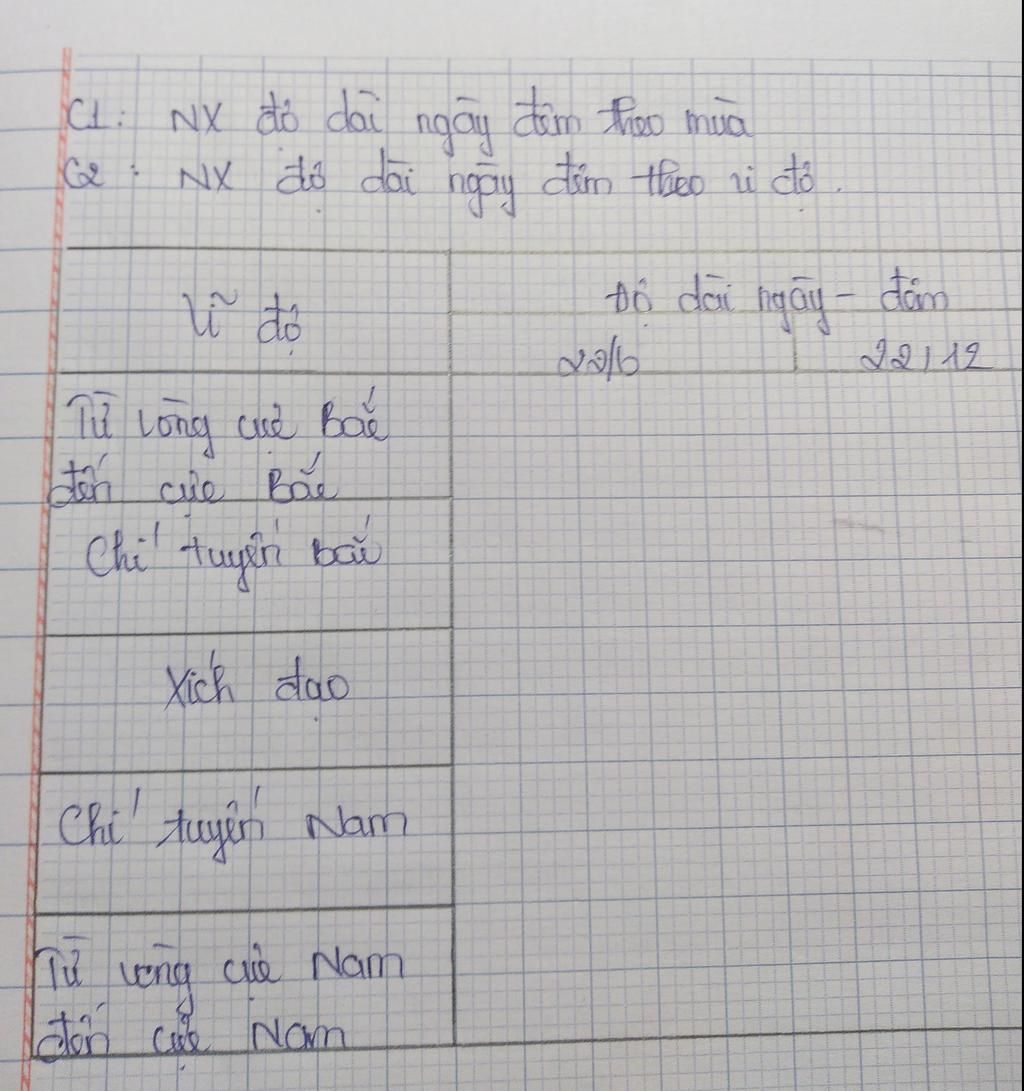 C1: NX độ dài ngày đêm theo mùa
C2: NX độ dài ngày đêm theo vi độ.
Vĩ độ
Độ dài ngày - đêm
22/6
22/12
Từ vòng cực Bắc
đến cực Bắc
Chí tuyến bắc
Xích đạo
Chí tuyến Nam
Từ vòng cực Nam
đến cực Nam